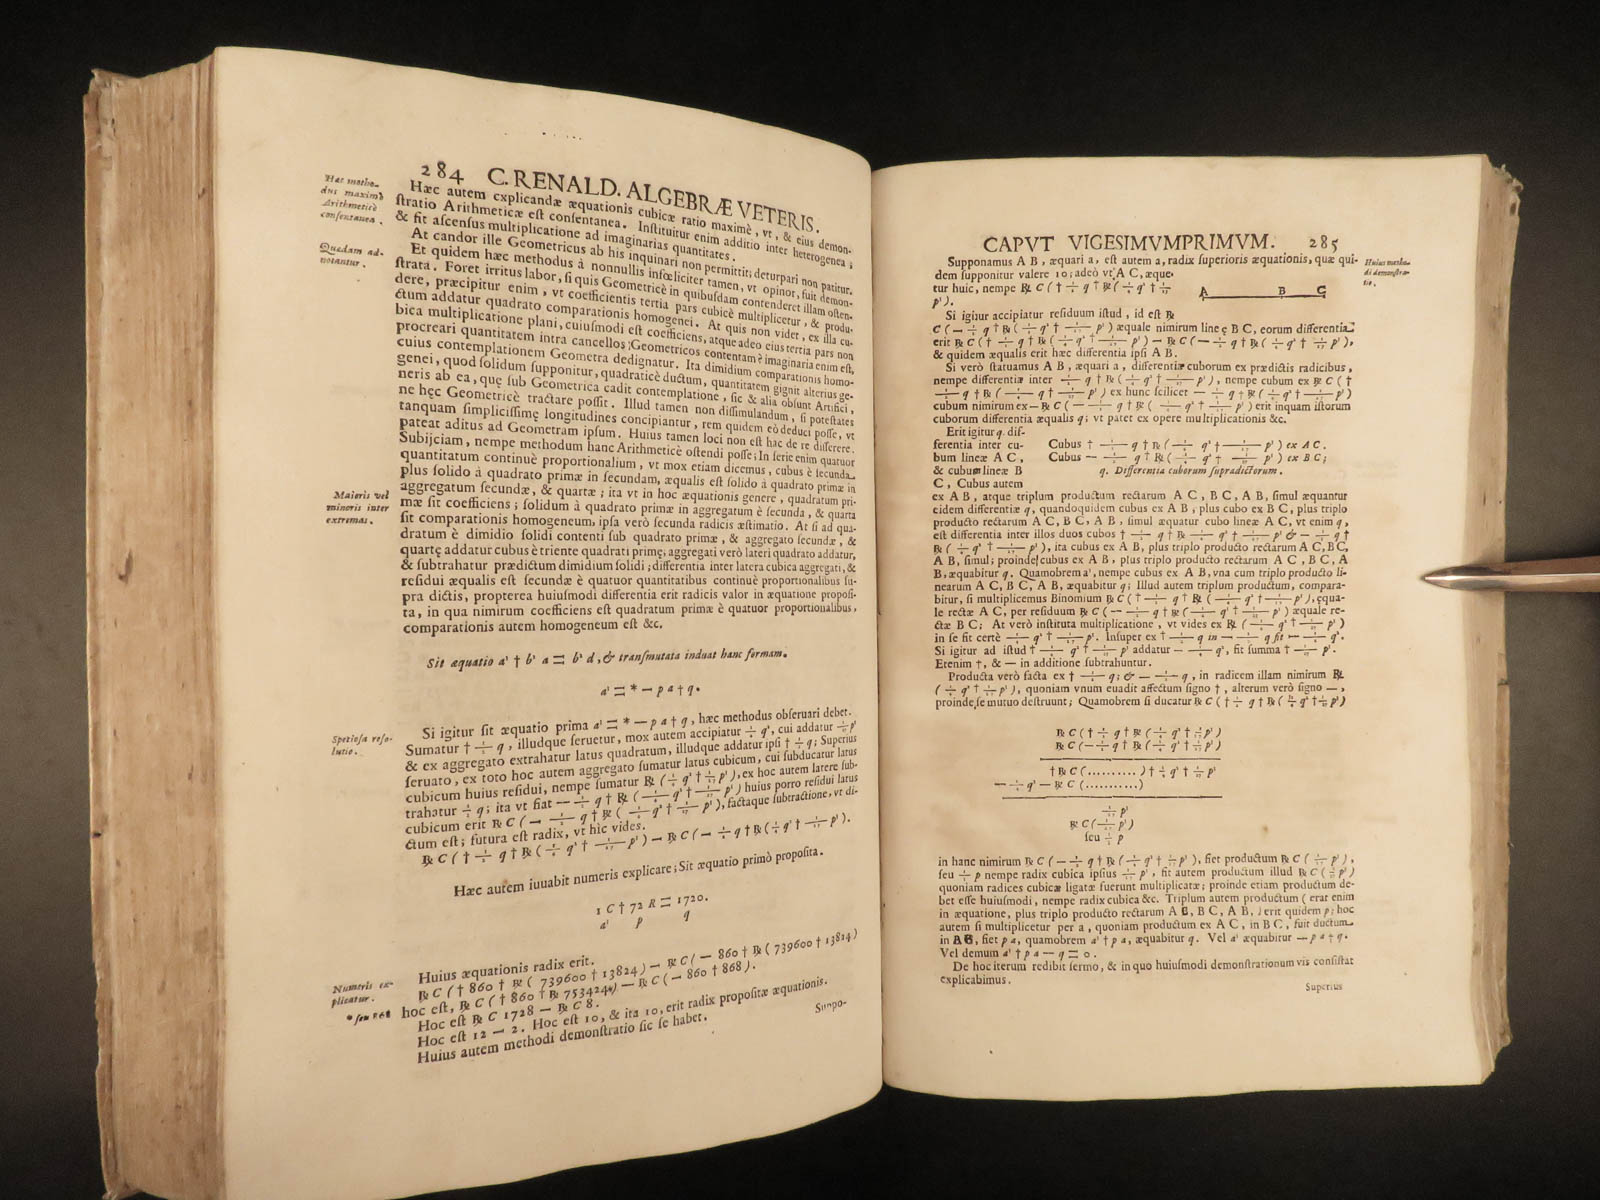 284 C. RENALD. ALGEBRÆ VETERIS.
Hæc metho-
dus maximè
Arithmeticè
consentanea.
Hæc autem explicandæ æquationis cubicæ ratio maximè, vt, & eius demon-
stratio Arithmeticæ est consentanea. Instituitur enim additio inter heterogenea;
& fit ascensus multiplicatione ad imaginarias quantitates.
At candor ille Geometricus ab his inquinari non permittit; deturpari non patitur.
Quædam ad-
notantur.
Et quidem hæc methodus à nonnullis infœliciter tamen, vt opinor, fuit demon-
strata. Foret irritus labor, si quis Geometricè in quibusdam contenderet illam osten-
dere, præcipitur enim, vt coefficientis tertia pars cubicè multiplicetur, & produ-
ctum addatur quadrato comparationis homogenei. At quis non videt, ex illa cu-
bica multiplicatione plani, cuiusmodi est coefficiens, atque adeo eius tertia pars non
procreari quantitatem intra cancellos Geometricos contentam è imaginaria enim est,
cuius contemplationem Geometra dedignatur. Ita dimidium comparationis homo-
genei, quod solidum supponitur, quadraticè ductum, quantitatem gignit alterius ge-
neris ab ea, quę sub Geometrica cadit contemplatione, sic & alia obsunt Artifici,
ne hęc Geometricè tractare possit. Illud tamen non dissimulandum, si potestates
tanquam simplicissimę longitudines concipiantur, rem quidem eò deduci posse, vt
pateat aditus ad Geometram ipsum. Huius tamen loci non est hac de re differere.
Subijciam, nempe methodum hanc Arithmeticè ostendi posse; In serie enim quatuor
quantitatum continuè proportionalium, vt mox etiam dicemus, cubus è secunda
plus solido à quadrato primæ in secundam, æqualis est solido à quadrato primæ in
Maioris vel
minoris inter
extremas.
aggregatum secundæ, & quartæ; ita vt in hoc æquationis genere, quadratum pri-
mæ sit coefficiens; solidum à quadrato primæ in aggregatum è secunda, & quarta
sit comparationis homogeneum, ipsa verò secunda radicis æstimatio. At si ad qua-
dratum è dimidio solidi contenti sub quadrato primæ, & aggregato secundæ, &
quartę addatur cubus è triente quadrati primę; aggregati verò lateri quadrato addatur,
& subtrahatur prædictum dimidium solidi; differentia inter latera cubica aggregati, &
residui æqualis est secundæ è quatuor quantitatibus continuè proportionalibus su-
pra dictis, propterea huiusmodi differentia erit radicis valor in æquatione proposi-
ta, in qua nimirum coefficiens est quadratum primæ è quatuor proportionalibus,
comparationis autem homogeneum est &c.
Sit æquatio a³ † b² a = b² d, & transmutata induat hanc formam.
a³ = * — p a † q.
Spetiosa reso-
lutio.
Si igitur sit æquatio prima a³ = * — p a † q, hæc methodus obseruari debet.
Sumatur † ½ q, illudque seruetur, mox autem accipiatur ¼ q², cui addatur 1/27 p³
& ex aggregato extrahatur latus quadratum, illudque addatur ipsi † ½ q; Superius
seruato, ex toto hoc autem aggregato sumatur latus cubicum, cui subducatur latus
cubicum huius residui, nempe sumatur ℞ (¼ q² † 1/27 p³), ex hoc autem latere sub-
trahatur ½ q; ita vt fiat — ½ q † ℞ (¼ q² † 1/27 p³) huius porro residui latus
cubicum erit ℞ C (— ½ q † ℞ (¼ q² † 1/27 p³), factaque subtractione, vt di-
ctum est; futura est radix, vt hic vides.
℞ C († ½ q † ℞ (¼ q² † 1/27 p³) — ℞ C (— ½ q † ℞ (¼ q² † 1/27 p³).
Hæc autem iuuabit numeris explicare; Sit æquatio primò proposita.
1 C † 72 R = 1720.
a³ p q
Numeris ex-
plicatur.
Huius æquationis radix erit.
℞ C († 860 † ℞ (739600 † 13824) — ℞ C (— 860 † ℞ (739600 † 13824)
* seu 868
hoc est, ℞ C († 860 † ℞ 753424*) — ℞ C (— 860 † 868).
Hoc est ℞ C 1728 — ℞ C 8.
Hoc est 12 — 2. Hoc est 10, & ita 10, erit radix propositæ æquationis.
Huius autem methodi demonstratio sic se habet.
Suppo-
CAPVT VIGESIMVMPRIMVM. 285
Supponamus A B, æquari a, est autem a, radix superioris æquationis, quæ qui-
Huius metho-
di demonstra-
tio.
dem supponitur valere 10; adeò vt A C, æque-
tur huic, nempe ℞ C († ½ q † ℞ (¼ q² † 1/27
p³).
A B C
Si igitur accipiatur residuum istud, id est ℞
C (— ½ q † ℞ (¼ q² † 1/27 p³) æquale nimirum lineę B C, eorum differentia
erit ℞ C († ½ q † ℞ (¼ q² † 1/27 p³) — ℞ C (— ½ q † ℞ (¼ q² † 1/27 p³),
& quidem æqualis erit hæc differentia ipsi A B.
Si verò statuamus A B, æquari a, differentiæ cuborum ex prædictis radicibus,
nempe differentiæ inter ½ q † ℞ (¼ q² † 1/27 p³), nempe cubum ex ℞ C (†
½ q † ℞ (¼ q² † 1/27 p³) ex hunc scilicet — ½ q † ℞ (¼ q² † 1/27 p³)
cubum nimirum ex — ℞ C (— ½ q † ℞ (¼ q² † 1/27 p³) erit inquam istorum
cuborum differentia æqualis q; vt patet ex opere multiplicationis &c.
Erit igitur q. dif-
ferentia inter cu-
bum lineæ A C,
& cubum lineæ B
C, Cubus autem
Cubus † ½ q † ℞ (¼ q² † 1/27 p³) ex A C.
Cubus — ½ q † ℞ (¼ q² † 1/27 p³) ex B C;
q. Differentia cuborum supradictorum.
ex A B, atque triplum productum rectarum A C, B C, A B, simul æquantur
eidem differentiæ q, quandoquidem cubus ex A B, plus cubo ex B C, plus triplo
producto rectarum A C, B C, A B, simul æquatur cubo lineæ A C, vt enim q,
est differentia inter illos duos cubos † ½ q † ℞ ¼ q² † 1/27 p³ & — ½ q †
℞ (¼ q² † 1/27 p³), ita cubus ex A B, plus triplo producto rectarum A C, B C,
A B, simul; proinde cubus ex A B, plus triplo producto rectarum A C, B C, A
B, æquabitur q. Quamobrem a³, nempe cubus ex A B, vna cum triplo producto li-
nearum A C, B C, A B, æquabitur q; Illud autem triplum productum, compara-
bitur, si multiplicemus Binomium ℞ C († ½ q † ℞ (¼ q² † 1/27 p³), ęqua-
le rectæ A C, per residuum ℞ C (— ½ q † ℞ (¼ q² † 1/27 p³) æquale re-
ctæ B C; At verò instituta multiplicatione, vt vides ex ℞ (¼ q² † 1/27 p³)
in se fit certè ¼ q² † 1/27 p³. Insuper ex † ½ q in — ½ q fit — ¼ q².
Si igitur ad istud † ¼ q² † 1/27 p³ addatur — ¼ q², fit summa † 1/27 p³.
Etenim †, & — in additione subtrahuntur.
Producta verò facta ex † ½ q; & — ½ q, in radicem illam nimirum ℞
(¼ q² † 1/27 p³), quoniam vnum euadit affectum signo †, alterum verò signo —,
proinde, se mutuo destruunt; Quamobrem si ducatur ℞ C († ½ q † ℞ (¼ q² † 1/27 p³)
℞ C († ½ q † ℞ (¼ q² † 1/27 p³)
℞ C (— ½ q † ℞ (¼ q² † 1/27 p³)
† ℞ C (..........) † ¼ q² † 1/27 p³
— ¼ q² — ℞ C (..........)
1/27 p³
℞ C (1/27 p³)
seu ⅓ p
in hanc nimirum ℞ C (— ½ q † ℞ (¼ q² † 1/27 p³), fiet productum ℞ C (1/27 p³),
seu ⅓ p nempe radix cubica ipsius 1/27 p³, fit autem productum illud ℞ C (1/27 p³)
quoniam radices cubicæ ligatæ fuerunt multiplicatæ; proinde etiam productum de-
bet esse huiusmodi, nempe radix cubica &c. Triplum autem productum (erat enim
in æquatione, plus triplo producto rectarum A C, B C, A B,) erit quidem p; hoc
autem si multiplicetur per a, quoniam productum ex A C, in B C, fuit ductum
in A B, fiet p a, quamobrem a³ † p a, æquabitur q. Vel a³ æquabitur — p a † q.
Vel demum a³ † p a — q = 0.
De hoc iterum redibit sermo, & in quo huiusmodi demonstrationum vis consistat
explicabimus.
Superius